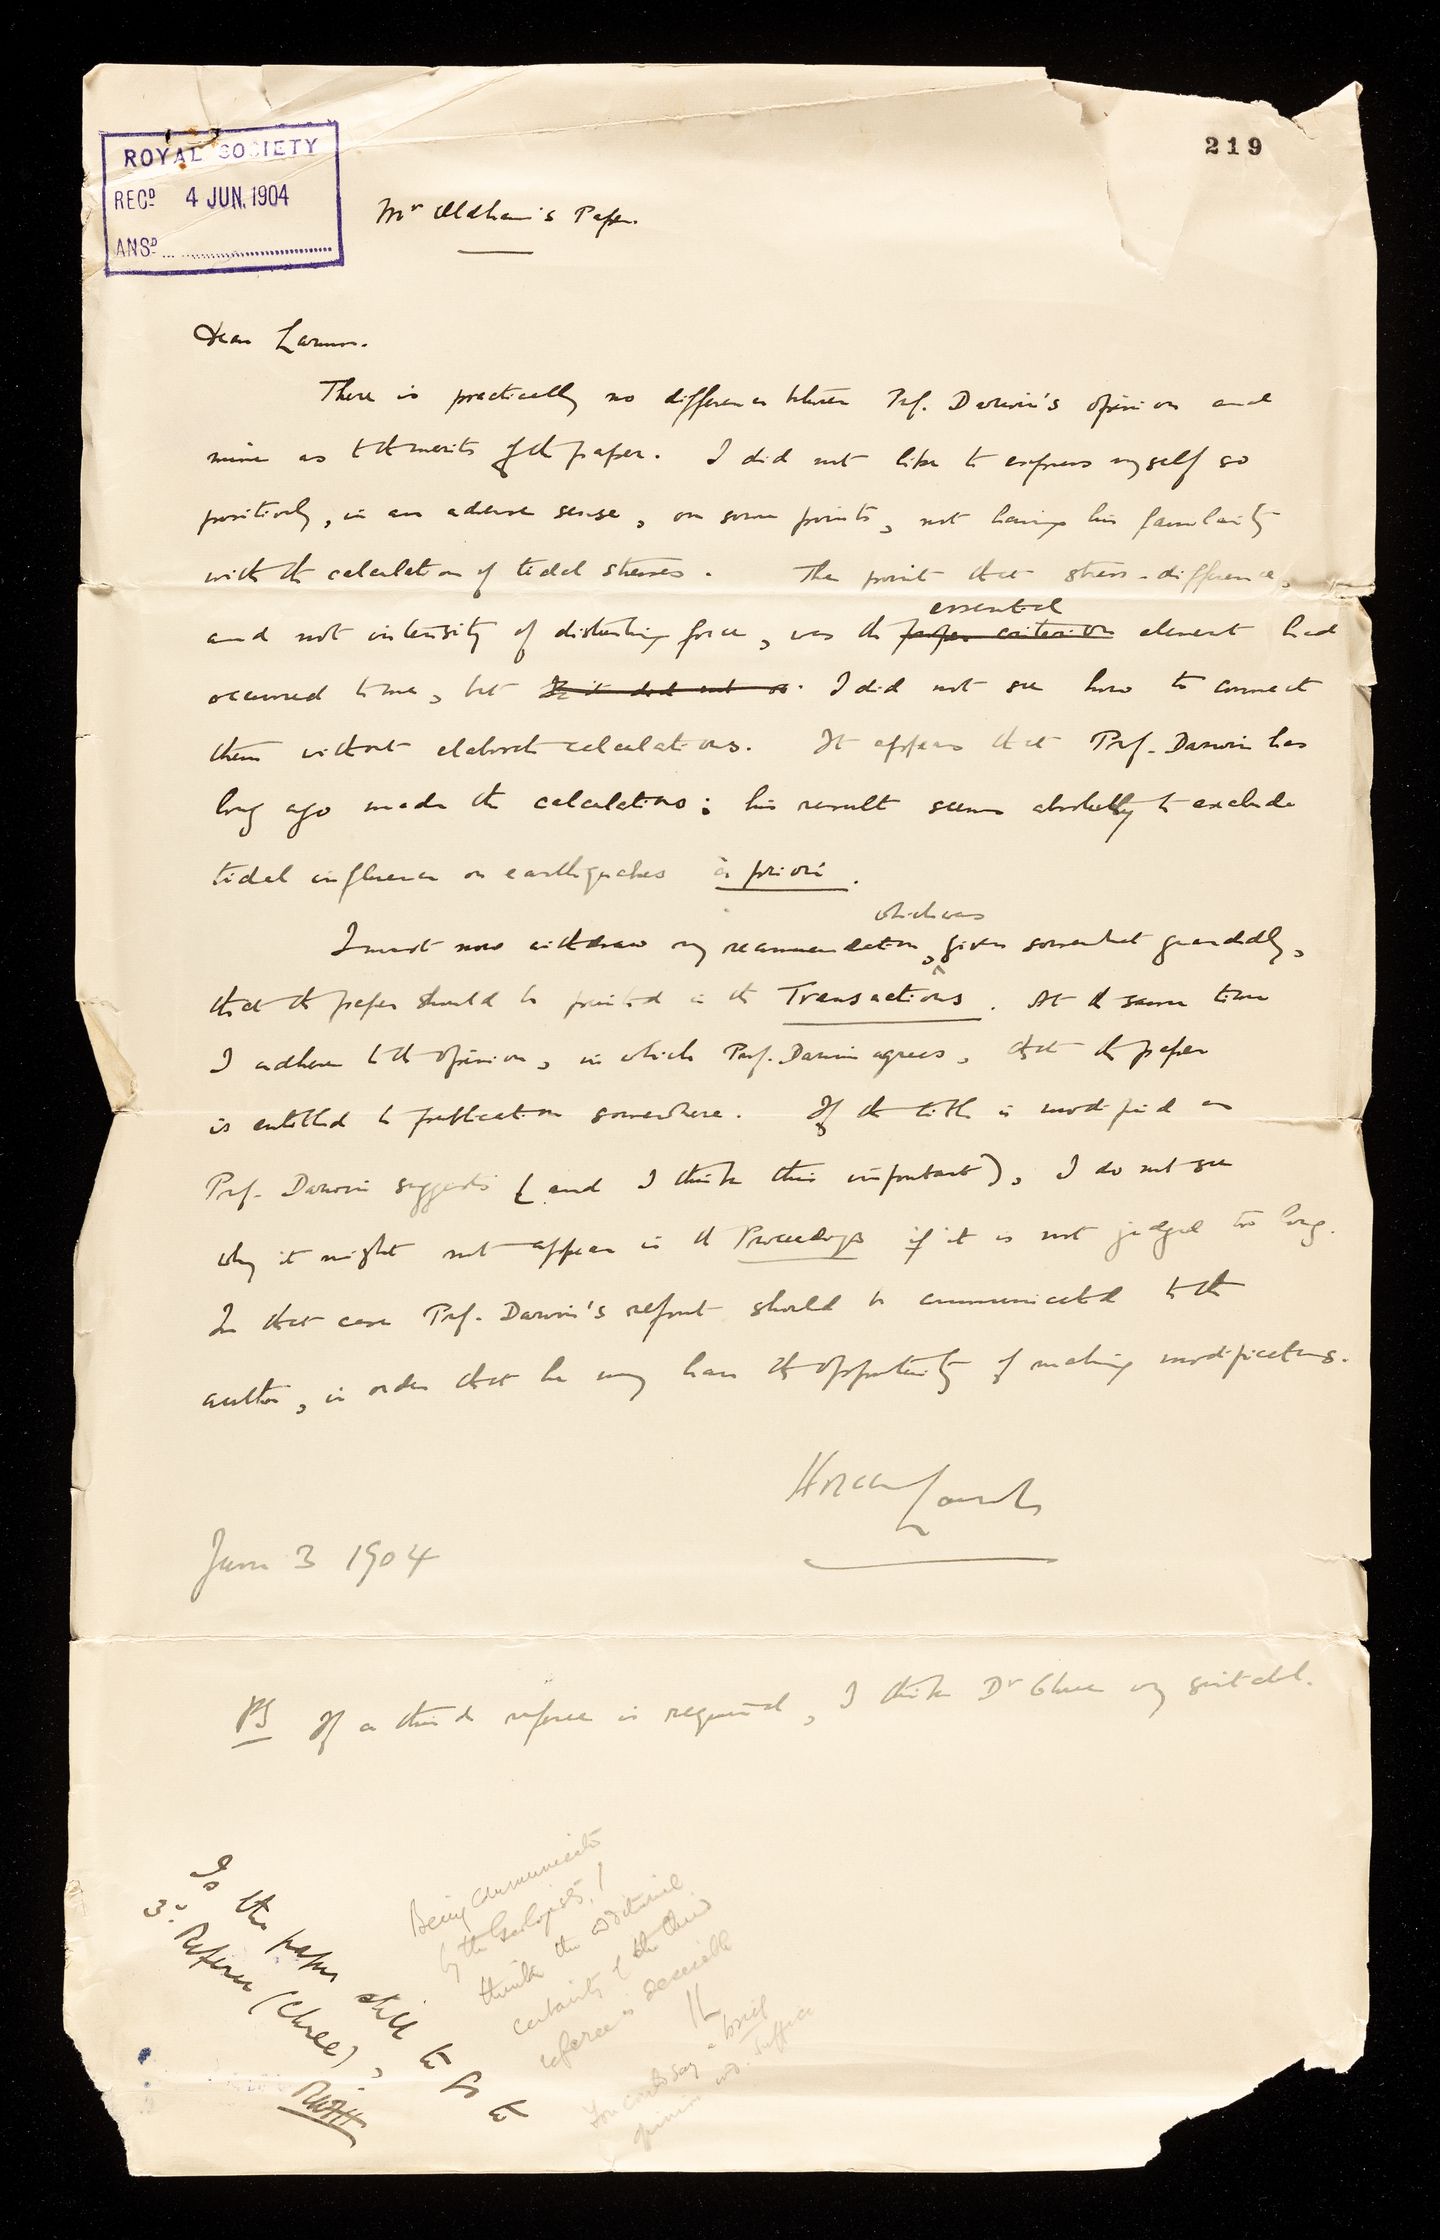 219
ROYAL SOCIETY
RECD. 4 JUN. 1904
ANSD.
Mr Oldham's Paper.
Dear Larmor.
There is practically no difference between Prof. Darwin's opinion and
mine as to the merits of the paper. I did not like to express myself so
positively, in an adverse sense, on some points, not having his familiarity
with the calculation of tidal stresses. The point that stress-difference,
essential
and not intensity of disturbing force, was the proper criterion element had
occurred to me, but I did not see how to connect
them without elaborate calculations. It appears that Prof. Darwin has
long ago made the calculations; his result seems absolutely to exclude
tidal influence on earthquakes à priori.
which was
I must now withdraw my recommendation, given somewhat guardedly,
that the paper should be printed in the Transactions. At the same time
I adhere to the opinion, in which Prof. Darwin agrees, that the paper
is entitled to publication somewhere. If the title is modified as
Prof. Darwin suggests (and I think this important), I do not see
why it might not appear in the Proceedings if it is not judged too long.
In that case Prof. Darwin's report should be communicated to the
author, in order that he may have the opportunity of making modifications.
Horace Lamb
June 3 1904
PS If a third referee is required, I think Dr Chree very suitable.
Is this paper still to go to
3rd. Referee (Chree),
RWFH
Being communicated
by the Geologists, I
think the additional
certainty of the third
referee is desirable
JL
You could say a brief
opinion wd. suffice